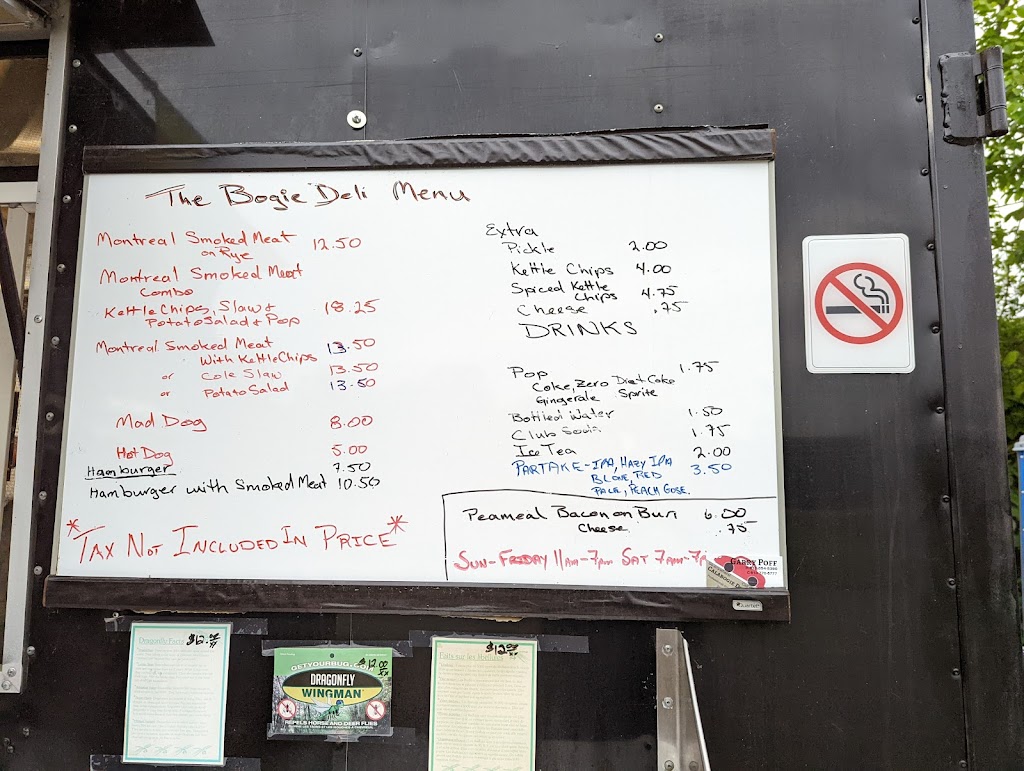 The Bogie Deli Menu
Montreal Smoked Meat 12.50
on Rye
Montreal Smoked Meat
Combo
Kettle Chips, Slaw & 18.25
Potato Salad & Pop
Montreal Smoked Meat 13.50
With Kettle Chips
or Cole Slaw 13.50
or Potato Salad 13.50
Mad Dog 8.00
Hot Dog 5.00
Hamburger 7.50
Hamburger with Smoked Meat 10.50
*Tax Not Included In Price*
Extra
Pickle 2.00
Kettle Chips 4.00
Spiced Kettle
Chips 4.75
Cheese .75
DRINKS
Pop 1.75
Coke, Zero Diet Coke
Gingerale Sprite
Bottled Water 1.50
Club Soda 1.75
Ice Tea 2.00
PARTAKE - IPA, HAZY IPA 3.50
RED
PALE, PEACH GOSE.
Peameal Bacon on Bun 6.00
Cheese .75
SUN-FRIDAY 11am-7pm SAT 7am-7p
GARRY POFF
CALABOGIE
Quartet
Dragonfly Facts $12.00
GETYOURBUG.CO
$12.00
DRAGONFLY
WINGMAN
REPELS HORSE AND DEER FLIES
$12.00
Faits sur les libellules